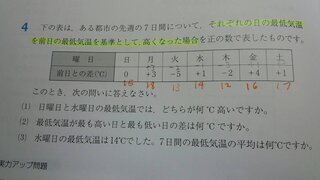 4 下の表は、ある都市の先週の7日間について、それぞれの日の最低気温
を前日の最低気温を基準として、高くなった場合を正の数で表したものです。
曜日 日 月 火 水 木 金 土
前日との差(℃) 0 +3 -5 +1 -2 +4 +1
15 18 13 14 12 16 17
このとき、次の問いに答えなさい。
(1) 日曜日と水曜日の最低気温では、どちらが何℃高いですか。
(2) 最低気温が最も高い日と最も低い日の差は何℃ですか。
(3) 水曜日の最低気温は14℃でした。7日間の最低気温の平均は何℃ですか。
実力アップ問題